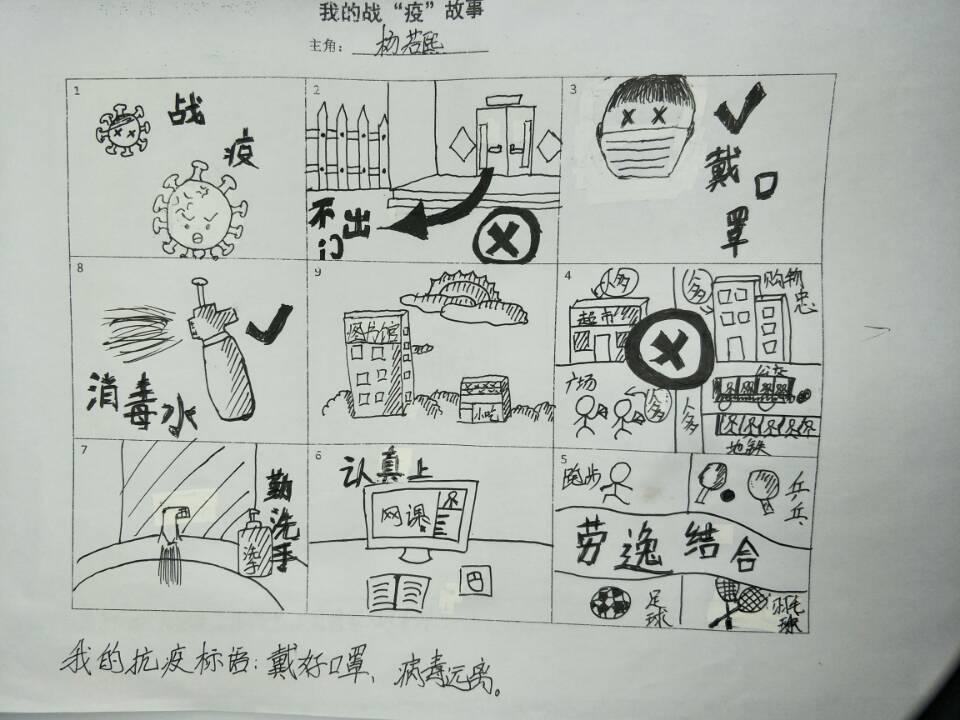 我的战“疫”故事
主角：杨若熙
1
战
疫
2
不出
门
3
戴口
罩
4
人多
超市
人多
购物
中心
广场
人多
人多
公交
地铁
5
跑步
乒
乓
劳逸结合
足
球
羽毛
球
6
认真上
网课
7
勤
洗
手
洗手
8
消毒水
9
图书馆
小吃
我的抗疫标语：戴好口罩、病毒远离。